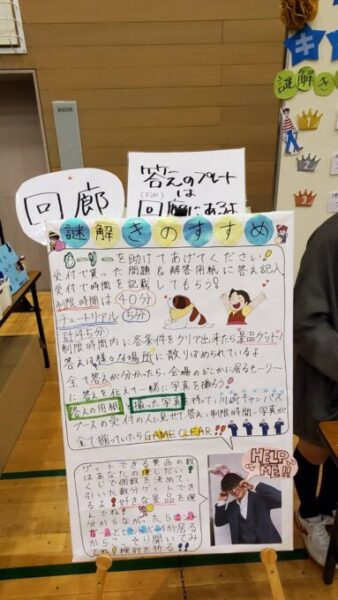 回廊
答えのプレート
は
回廊にあるよ
謎解き
謎解きのすすめ
を助けてあげてください!
受付で貰った問題&解答用紙に答え記入
受付で時間を記載してもらう!
制限時間は40分
チュートリアル5分
計45分
制限時間内に各条件をクリア出来たら景品ゲット!
答えは様々な場所に散りばめられているよ
全て答えが分かったら、会場のどこかに居るもーりー
に答えを伝え一緒に写真を撮ろう!
答えの用紙と撮った写真を持って川崎キャンパス
ブースの受付の人に見せて答え、制限時間、写真が
全て揃っていたらGAME CLEAR!!
HELP ME!!
ゲットできる景品の数
はあなたの運しだい!
くじで個数を決めて
引いた数分ゲットでき
るよ!好きな景品を選
んでね!
分からなかったら